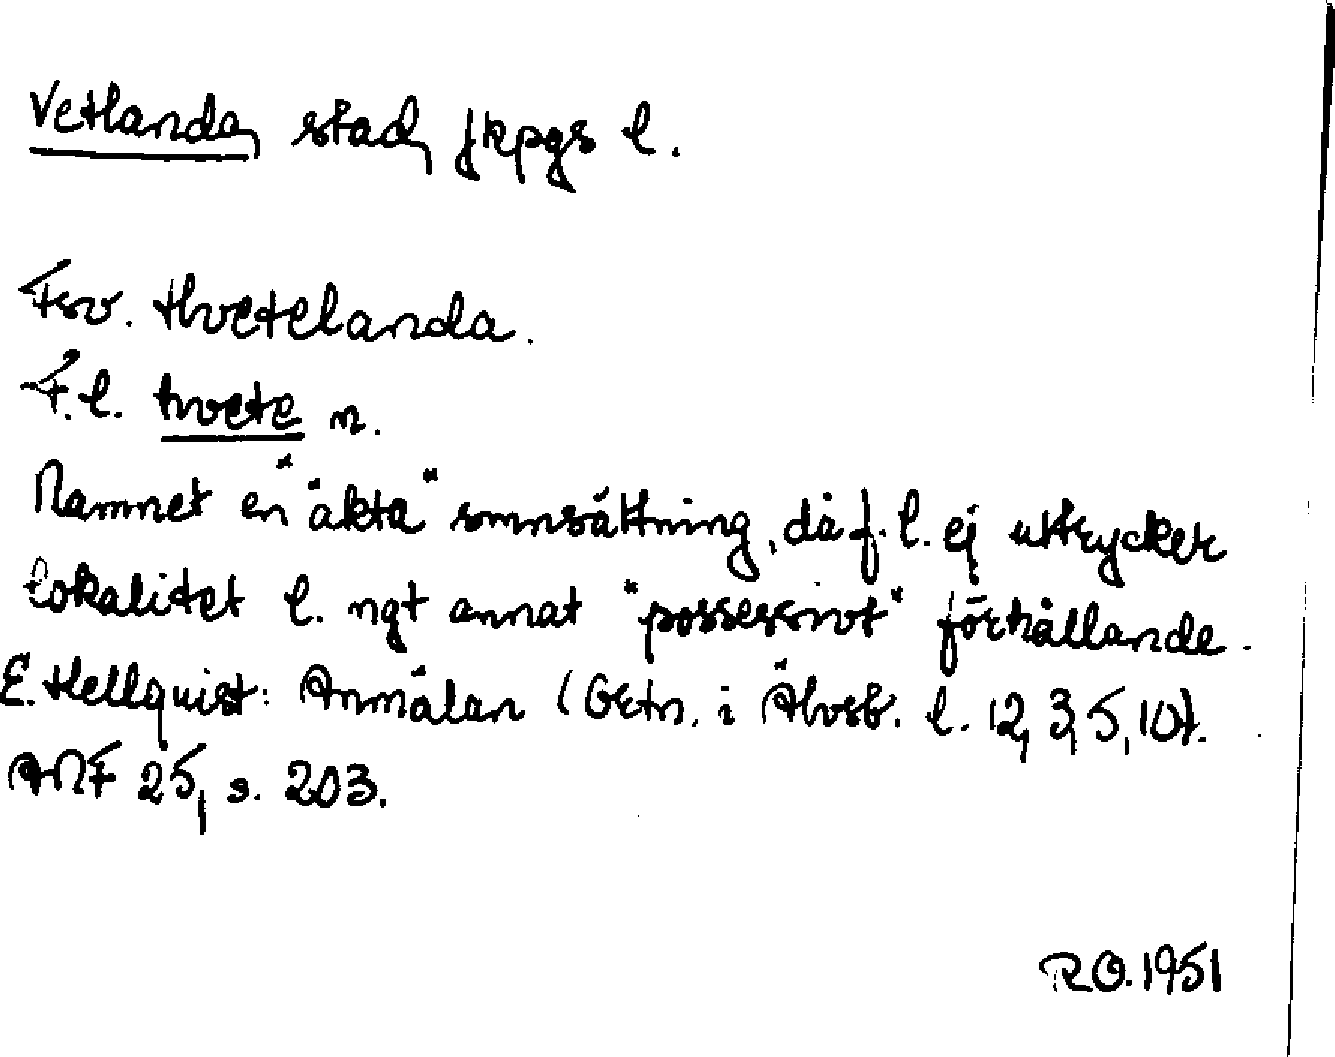 Vetlanda, stad, Jkpgs l.
Fsv. Hvetelanda.
F.l. hvete n.
Namnet en "äkta" smnsättning, då f.l. ej uttrycker
lokalitet l. ngt annat "possessivt" förhållande.
E. Hellquist: Anmälan (Ortn. i Älvsb. l. 12, 3, 5, 10).
ANF 25, s. 203.
R.O. 1951